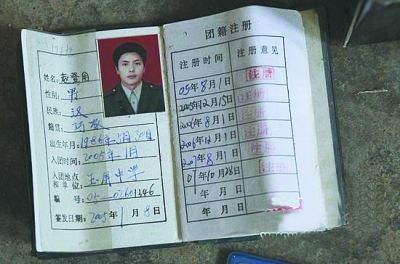 姓名: 赵登用
性别: 男
民族: 汉
籍贯:
出生年月:
入团时间: 2005年1月
入团地点
和单位: 中学
编号: 05-02601346
签发日期: 2005年1月8日
团籍注册
注册时间 注册意见
05年8月1日 注册
2005年12月15日 注册
2006年8月1日 注册
2006年12月1日 注册
2007年8月1日 注册
07年10月28日
年 月 日
年 月 日